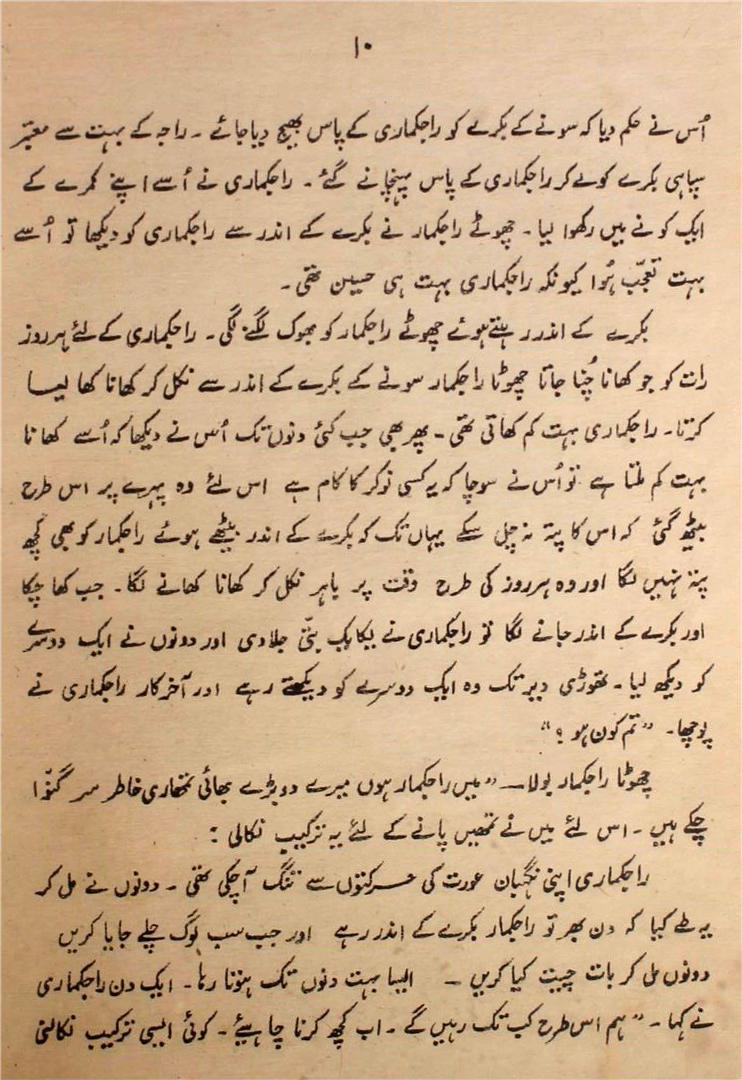 ۱۰
اُس نے حکم دیا کہ سونے کے بکرے کو راجکماری کے پاس بھیج دیا جائے ۔ راجہ کے بہت سے معتبر
سپاہی بکرے کو لے کر راجکماری کے پاس پہنچانے گئے ۔ راجکماری نے اُسے اپنے کمرے کے
ایک کونے میں رکھوا لیا ۔ چھوٹے راجکمار نے بکرے کے اندر سے راجکماری کو دیکھا تو اُسے
بہت تعجّب ہُوا کیونکہ راجکماری بہت ہی حسین تھی ۔
بکرے کے اندر رہتے ہوئے چھوٹے راجکمار کو بھوک لگنے لگی ۔ راجکماری کے لئے ہر روز
رات کو جو کھانا چُنا جاتا چھوٹا راجکمار سونے کے بکرے کے اندر سے نکل کر کھانا کھا لیا
کرتا ۔ راجکماری بہت کم کھاتی تھی ۔ پھر بھی جب کئی دنوں تک اُس نے دیکھا کہ اُسے کھانا
بہت کم ملتا ہے تو اُس نے سوچا کہ یہ کسی نوکر کا کام ہے اس لئے وہ پہرے پر اس طرح
بیٹھ گئی کہ اس کا پتہ نہ چل سکے یہاں تک کہ بکرے کے اندر بیٹھے ہوئے راجکمار کو بھی کچھ
پتہ نہیں لگا اور وہ ہر روز کی طرح وقت پر باہر نکل کر کھانا کھانے لگا ۔ جب کھا چکا
اور بکرے کے اندر جانے لگا تو راجکماری نے یکایک بتّی جلا دی اور دونوں نے ایک دوسرے
کو دیکھ لیا ۔ تھوڑی دیر تک وہ ایک دوسرے کو دیکھتے رہے اور آخر کار راجکماری نے
پوچھا ۔ "تم کون ہو ؟"
چھوٹا راجکمار بولا — "میں راجکمار ہوں میرے دو بڑے بھائی تمھاری خاطر سر گنوّا
چکے ہیں ۔ اس لئے میں نے تمھیں پانے کے لئے یہ ترکیب نکالی :
راجکماری اپنی نگہبان عورت کی حرکتوں سے تنگ آ چکی تھی ۔ دونوں نے مل کر
یہ طے کیا کہ دن بھر تو راجکمار بکرے کے اندر رہے اور جب سب لوگ چلے جایا کریں
دونوں مل کر بات چیت کیا کریں — ایسا بہت دنوں تک ہوتا رہا ۔ ایک دن راجکماری
نے کہا ۔ "ہم اس طرح کب تک رہیں گے ۔ اب کچھ کرنا چاہیئے ۔ کوئی ایسی ترکیب نکالنی